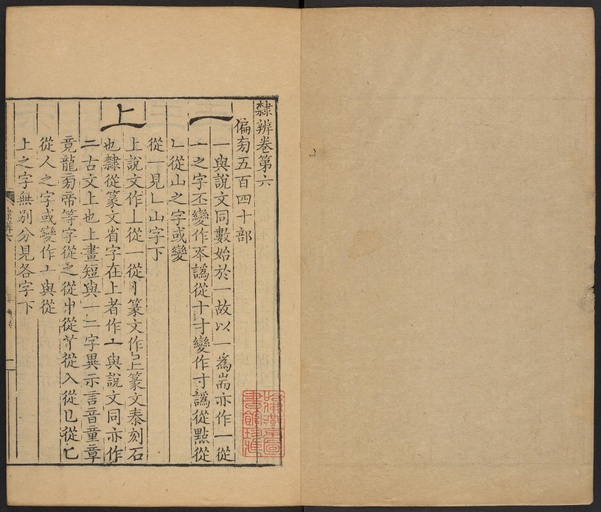 隸辨卷第六
偏旁五百四十部
一 一與說文同數始於一故以一為耑亦作一從
一之字丕變作㔻譌從十寸變作寸譌從點從
乚從山之字或變
從一見乚山字下
上 上說文作丄從一從丨篆文作𠄞篆文泰刻石
也隸從篆文省字在上者作亠與說文同亦作
二古文上也上畫短與一二字異示言音童章
竟龍旁帝等字從之從中從丫從入從㔾從匕
從人之字或變作亠與從
上之字無别分見各字下